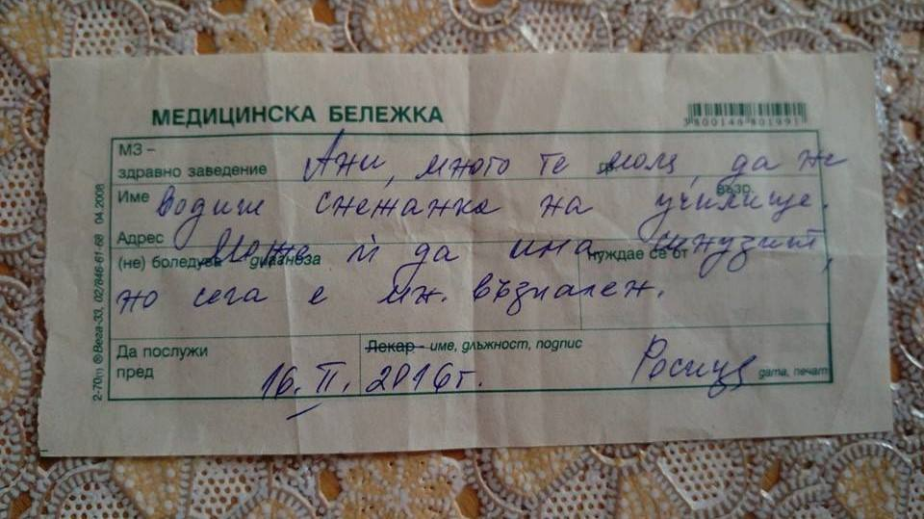 МЕДИЦИНСКА БЕЛЕЖКА
3800146801991
МЗ –
здравно заведение
Ани, много те моля, да не
възр.
Име водиш Снежанка на училище.
Адрес
Може ѝ да има синузит,
(не) боледува диагноза
нуждае се от
но сега е мн. възпален.
Да послужи
пред
Лекар - име, длъжност, подпис
16. II. 2016г.
Росица
дата, печат
2-70m ® Вега-33, 02/846-61-68 04.2008